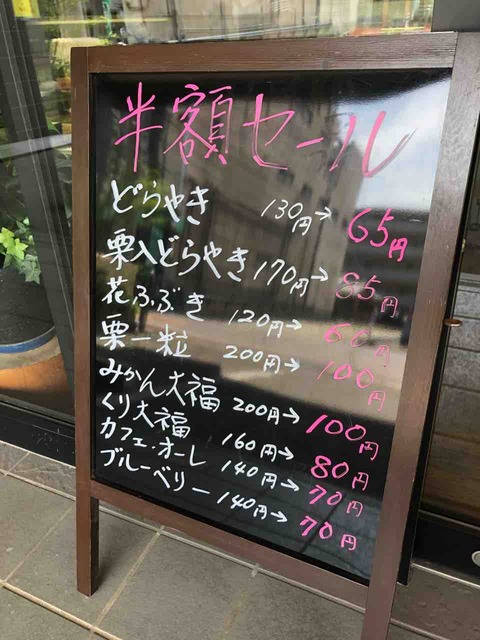 半額セール
どらやき 130円→65円
栗入どらやき 170円→85円
花ふぶき 120円→60円
栗一粒 200円→100円
みかん大福 200円→100円
くり大福 160円→80円
カフェ・オーレ 140円→70円
ブルーベリー 140円→70円